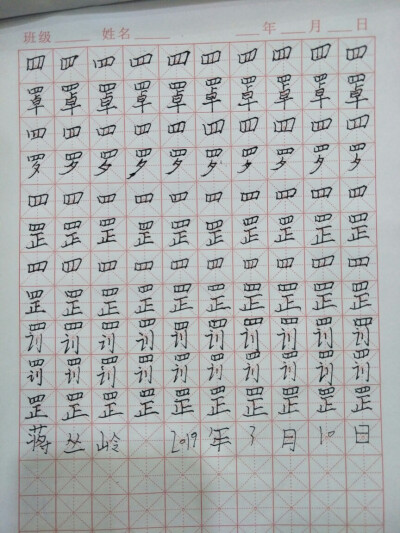 班级 姓名 年 月 日
罒 罒 罒 罒 罒 罒 罒 罒 罒 罒
罩 罩 罩 罩 罩 罩 罩 罩 罩 罩
罒 罒 罒 罒 罒 罒 罒 罒 罒 罒
罗 罗 罗 罗 罗 罗 罗 罗 罗 罗
罒 罒 罒 罒 罒 罒 罒 罒 罒 罒
罡 罡 罡 罡 罡 罡 罡 罡 罡 罡
罒 罒 罒 罒 罒 罒 罒 罒 罒 罒
罡 罡 罡 罡 罡 罡 罡 罡 罡 罡
罚 罚 罚 罚 罚 罚 罚 罚 罚 罚
罚 罚 罚 罚 罚 罚 罚 罚 罚 罚
罡 罡 罡 罡 罡 罡 罡 罡 罡 罡
蒋 丛 岭 2019 年 3 月 10 日